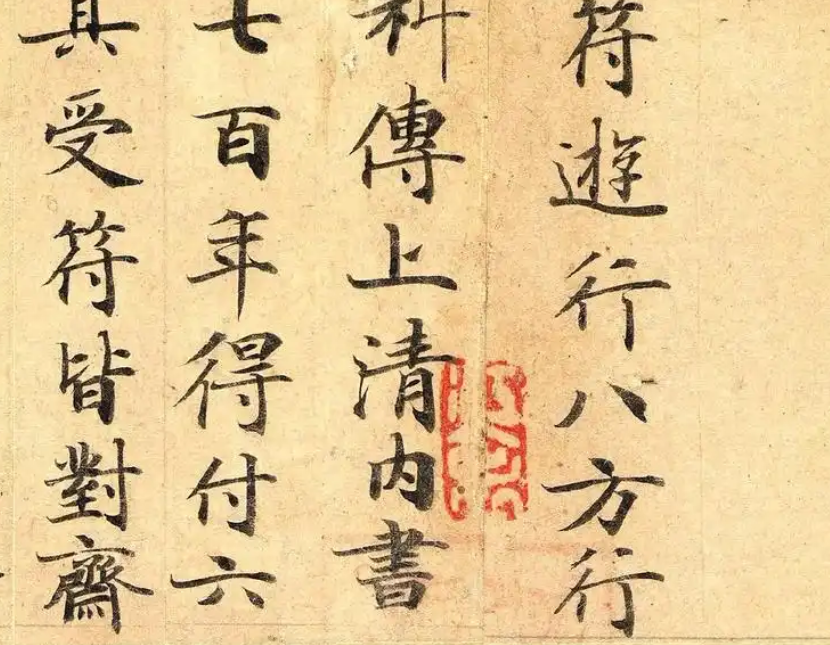 符遊行八方行
科傳上清内書
七百年得付六
真受符皆對齋